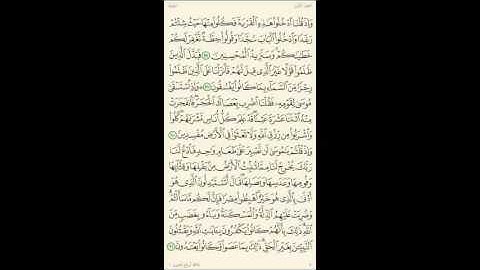 وَإِذْ قُلْنَا ٱدْخُلُوا۟ هَـٰذِهِ ٱلْقَرْيَةَ فَكُلُوا۟ مِنْهَا حَيْثُ شِئْتُمْ
رَغَدًا وَٱدْخُلُوا۟ ٱلْبَابَ سُجَّدًا وَقُولُوا۟ حِطَّةٌ نَّغْفِرْ لَكُمْ
خَطَـٰيَـٰكُمْ وَسَنَزِيدُ ٱلْمُحْسِنِينَ ٥٨ فَبَدَّلَ ٱلَّذِينَ
ظَلَمُوا۟ قَوْلًا غَيْرَ ٱلَّذِى قِيلَ لَهُمْ فَأَنزَلْنَا عَلَى ٱلَّذِينَ ظَلَمُوا۟
رِجْزًا مِّنَ ٱلسَّمَآءِ بِمَا كَانُوا۟ يَفْسُقُونَ ٥٩ وَإِذِ ٱسْتَسْقَىٰ
مُوسَىٰ لِقَوْمِهِۦ فَقُلْنَا ٱضْرِب بِّعَصَاكَ ٱلْحَجَرَ فَٱنفَجَرَتْ
مِنْهُ ٱثْنَتَا عَشْرَةَ عَيْنًا قَدْ عَلِمَ كُلُّ أُنَاسٍ مَّشْرَبَهُمْ كُلُوا۟
وَٱشْرَبُوا۟ مِن رِّزْقِ ٱللَّهِ وَلَا تَعْثَوْا۟ فِى ٱلْأَرْضِ مُفْسِدِينَ ٦٠
وَإِذْ قُلْتُمْ يَـٰمُوسَىٰ لَن نَّصْبِرَ عَلَىٰ طَعَامٍ وَٰحِدٍ فَٱدْعُ لَنَا
رَبَّكَ يُخْرِجْ لَنَا مِمَّا تُنۢبِتُ ٱلْأَرْضُ مِنۢ بَقْلِهَا وَقِثَّآئِهَا
وَفُومِهَا وَعَدَسِهَا وَبَصَلِهَا قَالَ أَتَسْتَبْدِلُونَ ٱلَّذِى هُوَ
أَدْنَىٰ بِٱلَّذِى هُوَ خَيْرٌ ٱهْبِطُوا۟ مِصْرًا فَإِنَّ لَكُم مَّا سَأَلْتُمْ
وَضُرِبَتْ عَلَيْهِمُ ٱلذِّلَّةُ وَٱلْمَسْكَنَةُ وَبَآءُو بِغَضَبٍ مِّنَ
ٱللَّهِ ذَٰلِكَ بِأَنَّهُمْ كَانُوا۟ يَكْفُرُونَ بِـَٔايَـٰتِ ٱللَّهِ وَيَقْتُلُونَ
ٱلنَّبِيِّـۧنَ بِغَيْرِ ٱلْحَقِّ ذَٰلِكَ بِمَا عَصَوا۟ وَّكَانُوا۟ يَعْتَدُونَ ٦١